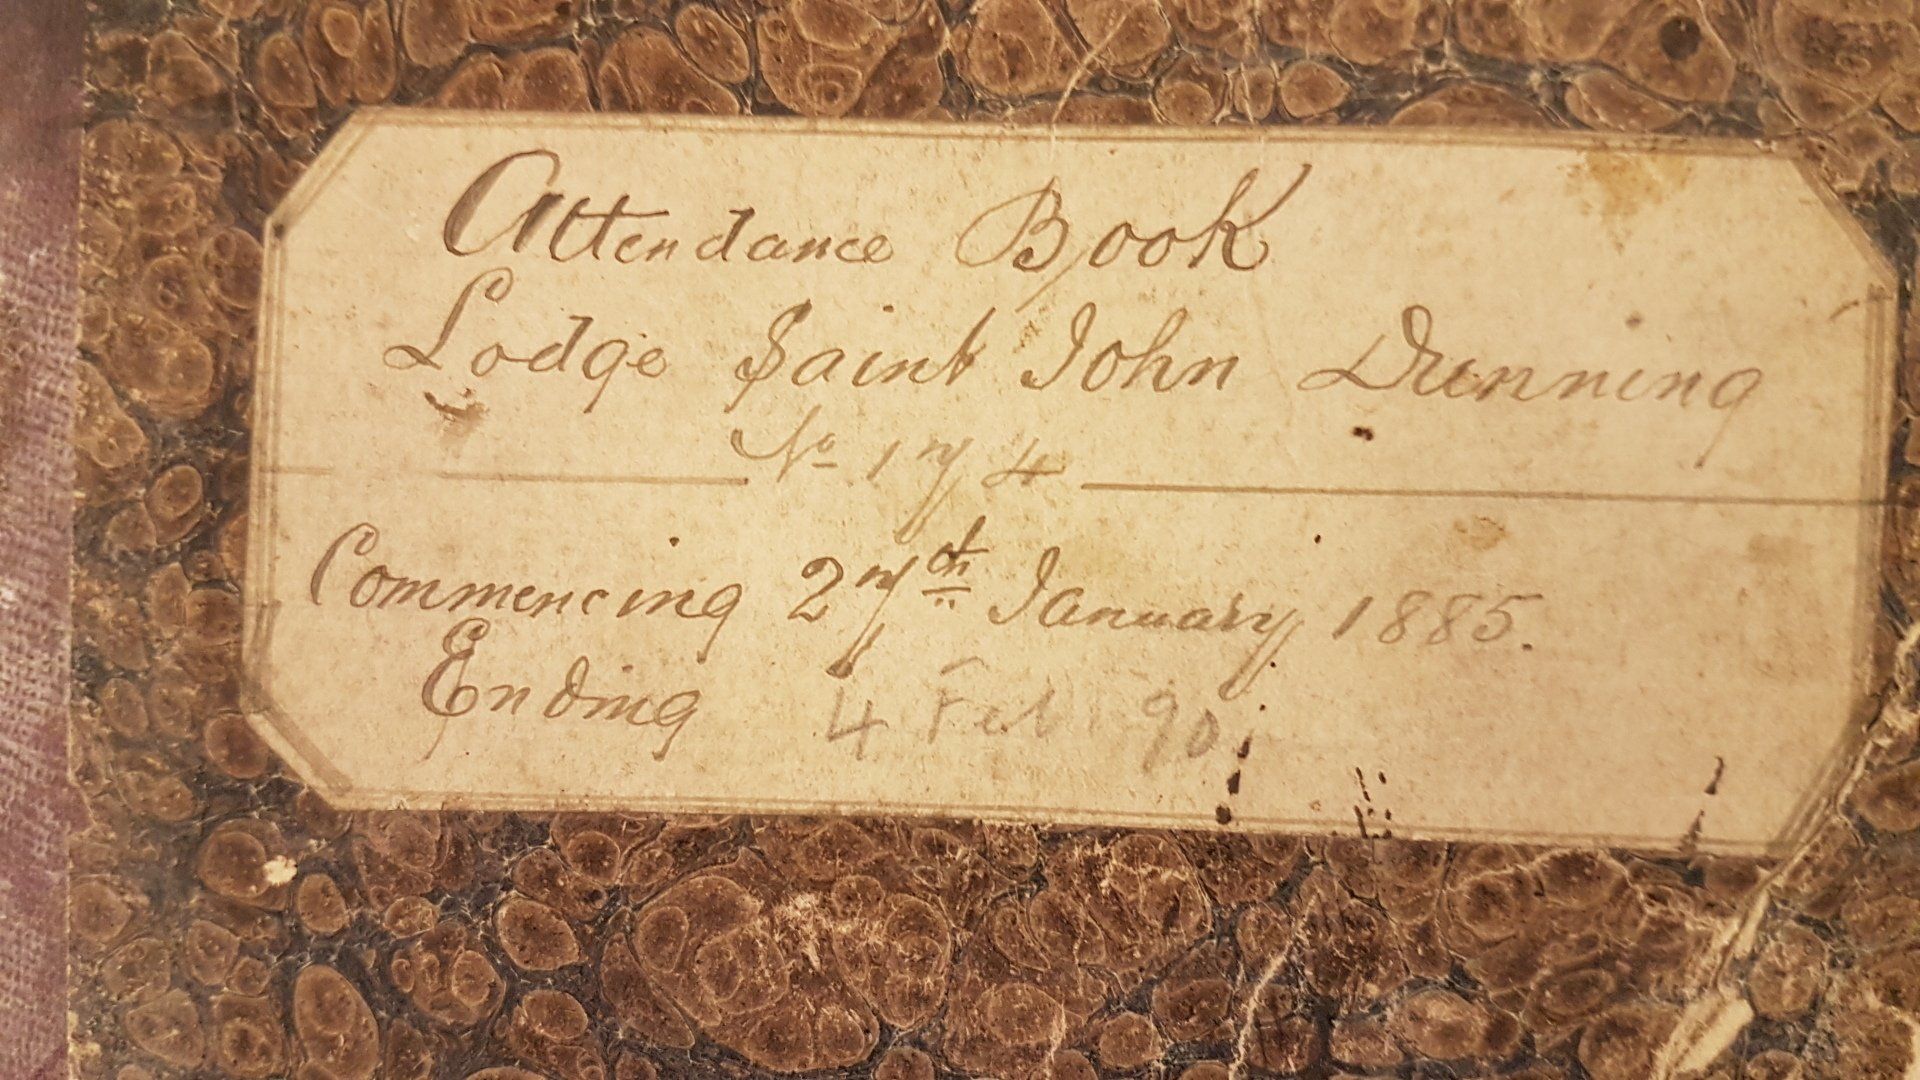 Attendance Book
Lodge Saint John Dunning
No 174
Commencing 27th January 1885.
Ending 4 Feb